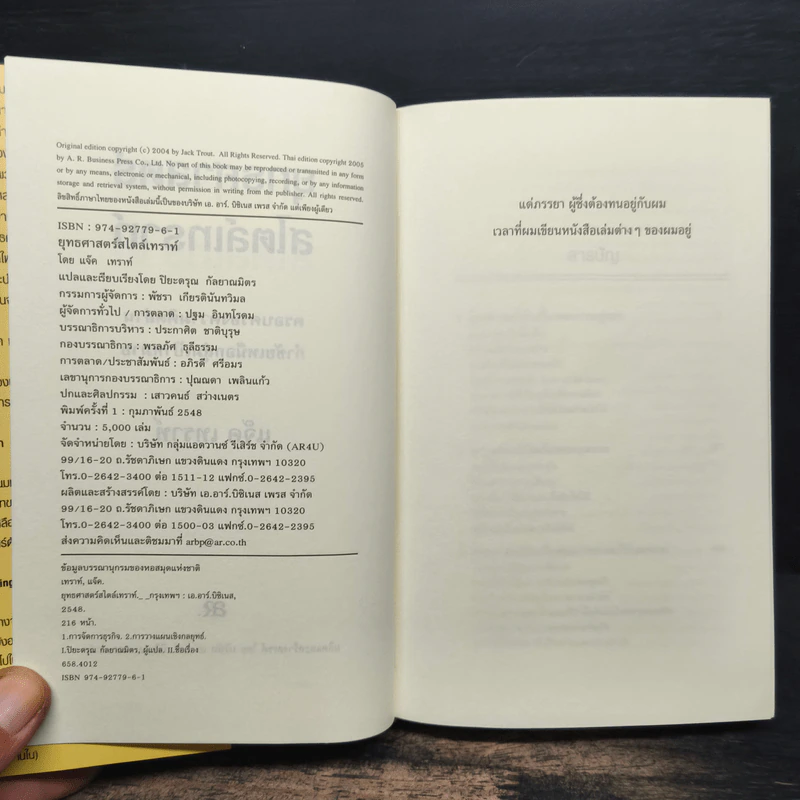 Original edition copyright (c) 2004 by Jack Trout. All Rights Reserved. Thai edition copyright 2005
by A. R. Business Press Co., Ltd. No part of this book may be reproduced or transmitted in any form
or by any means, electronic or mechanical, including photocopying, recording, or by any information
storage and retrieval system, without permission in writing from the publisher. All rights reserved.
ลิขสิทธิ์ภาษาไทยของหนังสือเล่มนี้เป็นของบริษัท เอ. อาร์. บิซิเนส เพรส จำกัด แต่เพียงผู้เดียว
ISBN : 974-92779-6-1
ยุทธศาสตร์สไตล์เทราท์
โดย แจ๊ค เทราท์
แปลและเรียบเรียงโดย ปิยะดรุณ กัลยาณมิตร
กรรมการผู้จัดการ : พัชรา เกียรตินันทวิมล
ผู้จัดการทั่วไป / การตลาด : ปฐม อินทโรดม
บรรณาธิการบริหาร : ประกาศิต ชาติบุรุษ
กองบรรณาธิการ : พรลภัส ธุลีธรรม
การตลาด/ประชาสัมพันธ์ : อภิรดี ศรีอมร
เลขานุการกองบรรณาธิการ : ปุณณดา เพลินแก้ว
ปกและศิลปกรรม : เสาวคนธ์ สว่างเนตร
พิมพ์ครั้งที่ 1 : กุมภาพันธ์ 2548
จำนวน : 5,000 เล่ม
จัดจำหน่ายโดย : บริษัท กลุ่มแอดวานซ์ รีเสิร์ช จำกัด (AR4U)
99/16-20 ถ.รัชดาภิเษก แขวงดินแดง กรุงเทพฯ 10320
โทร.0-2642-3400 ต่อ 1511-12 แฟกซ์.0-2642-2395
ผลิตและสร้างสรรค์โดย : บริษัท เอ.อาร์.บิซิเนส เพรส จำกัด
99/16-20 ถ.รัชดาภิเษก แขวงดินแดง กรุงเทพฯ 10320
โทร.0-2642-3400 ต่อ 1500-03 แฟกซ์.0-2642-2395
ส่งความคิดเห็นและติชมมาที่ arbp@ar.co.th
ข้อมูลบรรณานุกรมของหอสมุดแห่งชาติ
เทราท์, แจ๊ค.
ยุทธศาสตร์สไตล์เทราท์._ _กรุงเทพฯ : เอ.อาร์.บิซิเนส,
2548.
216 หน้า.
1.การจัดการธุรกิจ. 2.การวางแผนเชิงกลยุทธ์.
I.ปิยะดรุณ กัลยาณมิตร, ผู้แปล. II.ชื่อเรื่อง
658.4012
ISBN 974-92779-6-1
แด่ภรรยา ผู้ซึ่งต้องทนอยู่กับผม
เวลาที่ผมเขียนหนังสือเล่มต่างๆ ของผมอยู่